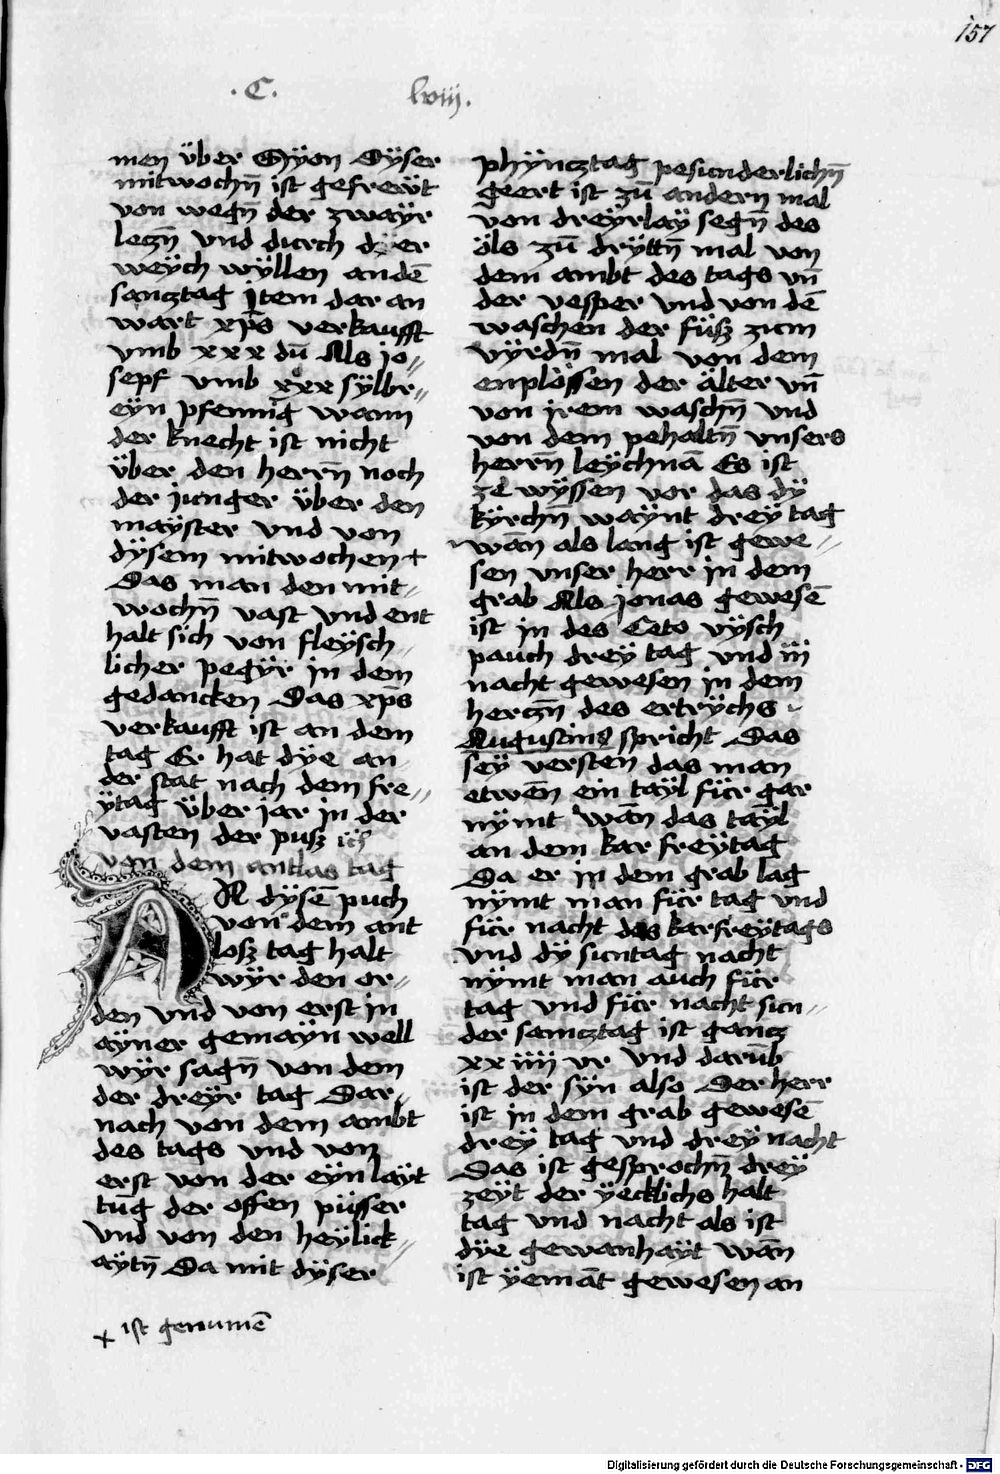 157
.C. lviij.
men über Syon Dyser
mitwochn̄ ist gefreẅt
von wegn̄ der zwaÿr
leczn̄ vnd durch dyer
weÿch wÿllen an dē
sancztag Jtem dar an
wart xp̄s verkaufft
vmb xxx dn̄ Als jo⸗
sepf vmb xxx sÿlbr⸗
eyn pfennig wann
der knecht ist nicht
über den herrn̄ noch
der junger über den
maÿster vnd von
dÿsem mitwochen +
Das man den mit⸗
wochn̄ vast vnd ent
halt sich von fleÿsch⸗
licher pegÿr in dem
gedancken Das xp̄s
verkaufft ist an dem
tag Er hat dÿe an⸗
der stat nach dem fre⸗
ÿtag über jar in der
vasten der pusz
von dem antlas tag
AN dÿsē puch
von dem ant
losz tag halt
wÿr den or⸗
den vnd von erst in
aÿner gemaÿn well
wÿr sagn̄ von dem
der dreÿr tag Dar⸗
nach von dem ambt
des tags vnd von
erst von der eÿnlaÿt
tūg der offen püsser
vnd von den heÿlick⸗
aÿtn̄ Da mit dÿser
+ ist genumē
phÿncztag pesunderlichn̄
geert ist zū andern mal
von dreÿrlaÿ segn̄ des
öls zū drÿttn̄ mal von
dem ambt des tags vn̄
der vesper vnd von dē
waschen der füsz zum
vÿrdn̄ mal von dem
enplössen der älter vn̄
von jrem waschn̄ vnd
von dem pehaltn̄ vnsers
herrn̄ leÿchnā Es ist
ze wÿssen vor das dÿ
kÿrchn̄ waÿnt dreÿ tag
wān als lang ist gewe⸗
sen vnser herr in dem
grab Als jonas gewesē
ist in des Ceto vÿsch
pauch dreÿ tag vnd iij
nacht gewesen in dem
herczn̄ des ertrÿchs
Augustinus spricht Das
seÿ versten das man
etwēn ein taÿl für gar
nÿmt wān das taÿl
an dem kar freÿtag
Da er in dem grab lag
nÿmt man für tag vnd
für nacht des karfreÿtags
vnd dÿ suntag nacht
nÿmt man auch für
tag vnd für nacht sun⸗
der samcztag ist gancz
xxiiij vr vnd darūb
ist der sÿn also Der herr
ist in dem grab gewesē
dreÿ tag vnd dreÿ nacht
Das ist gesprochn̄ dreÿ
zeÿt der ÿecklichs halt
tag vnd nacht als ist
dÿe gewanhaÿt wān
ist ÿemāt gewesen an
Digitalisierung gefördert durch die Deutsche Forschungsgemeinschaft - DFG